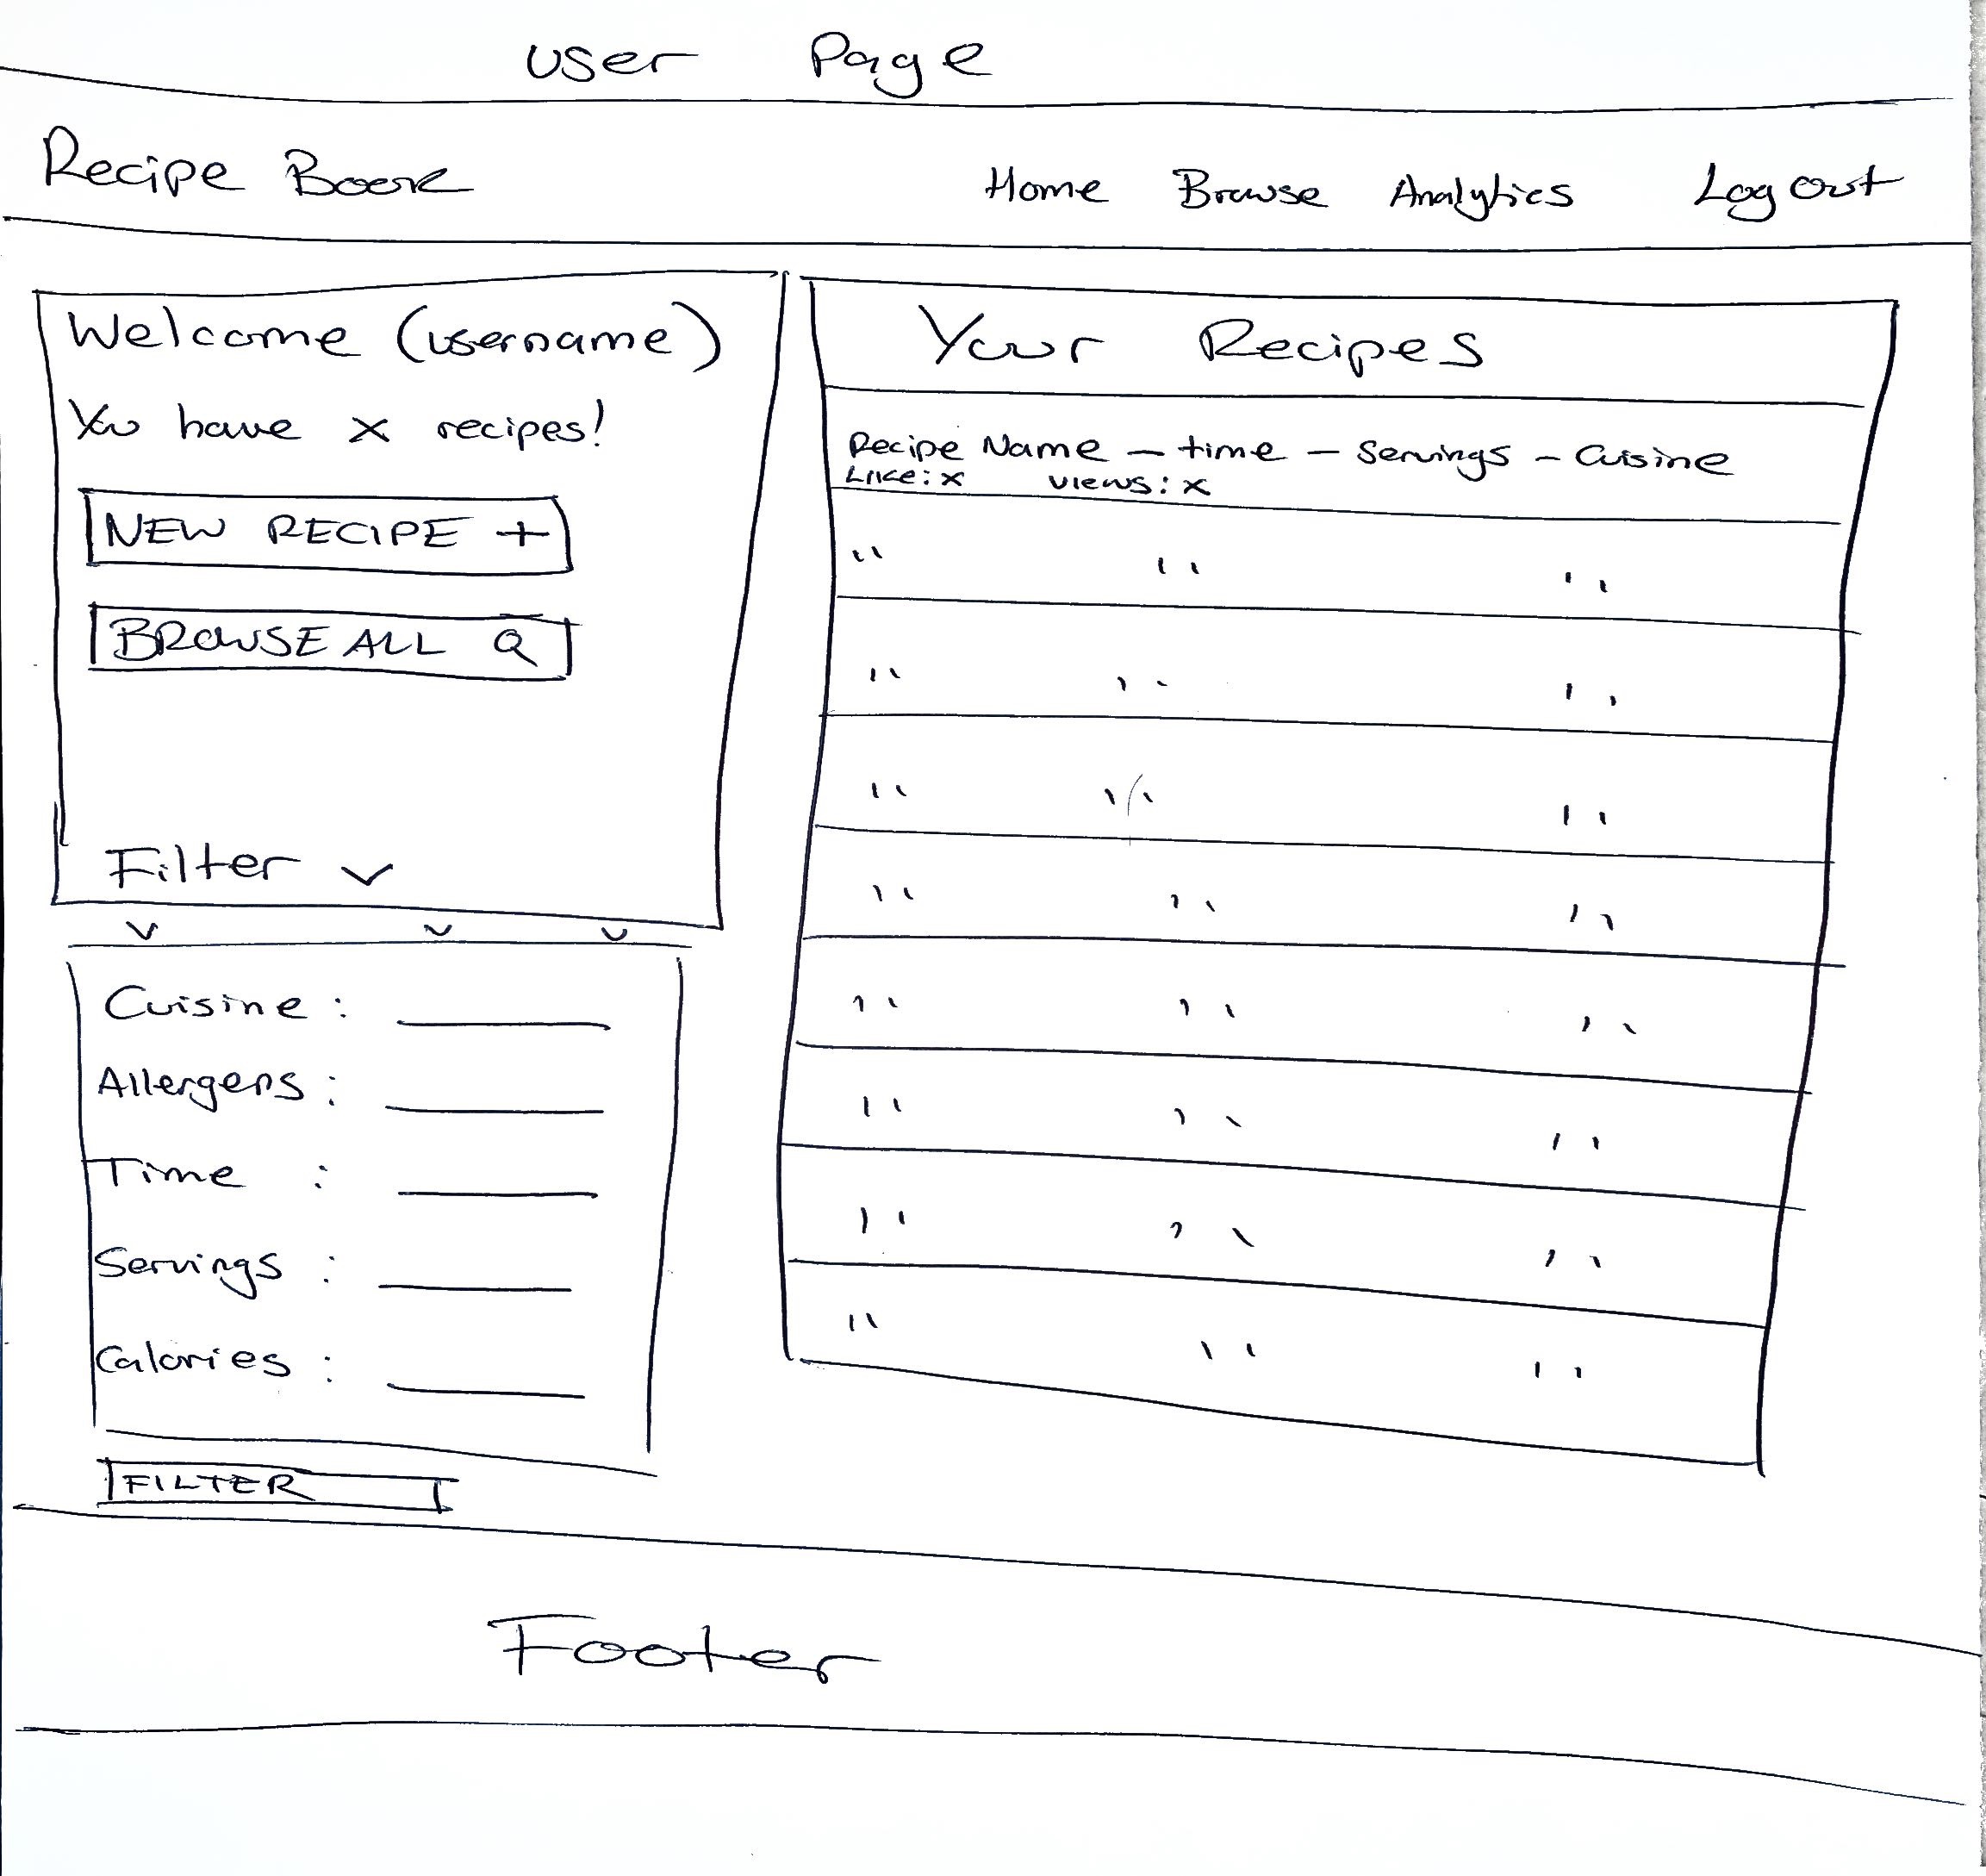 User Page
Recipe Book
Home Browse Analytics Log out
Welcome (username)
You have x recipes!
NEW RECIPE +
BROWSE ALL
Filter
Cuisine :
Allergens :
Time :
Servings :
Calories :
FILTER
Your Recipes
Recipe Name - time - Servings - Cuisine
Like: x views: x
" " "
" " "
" " "
" " "
" " "
" " "
" " "
" " "
Footer